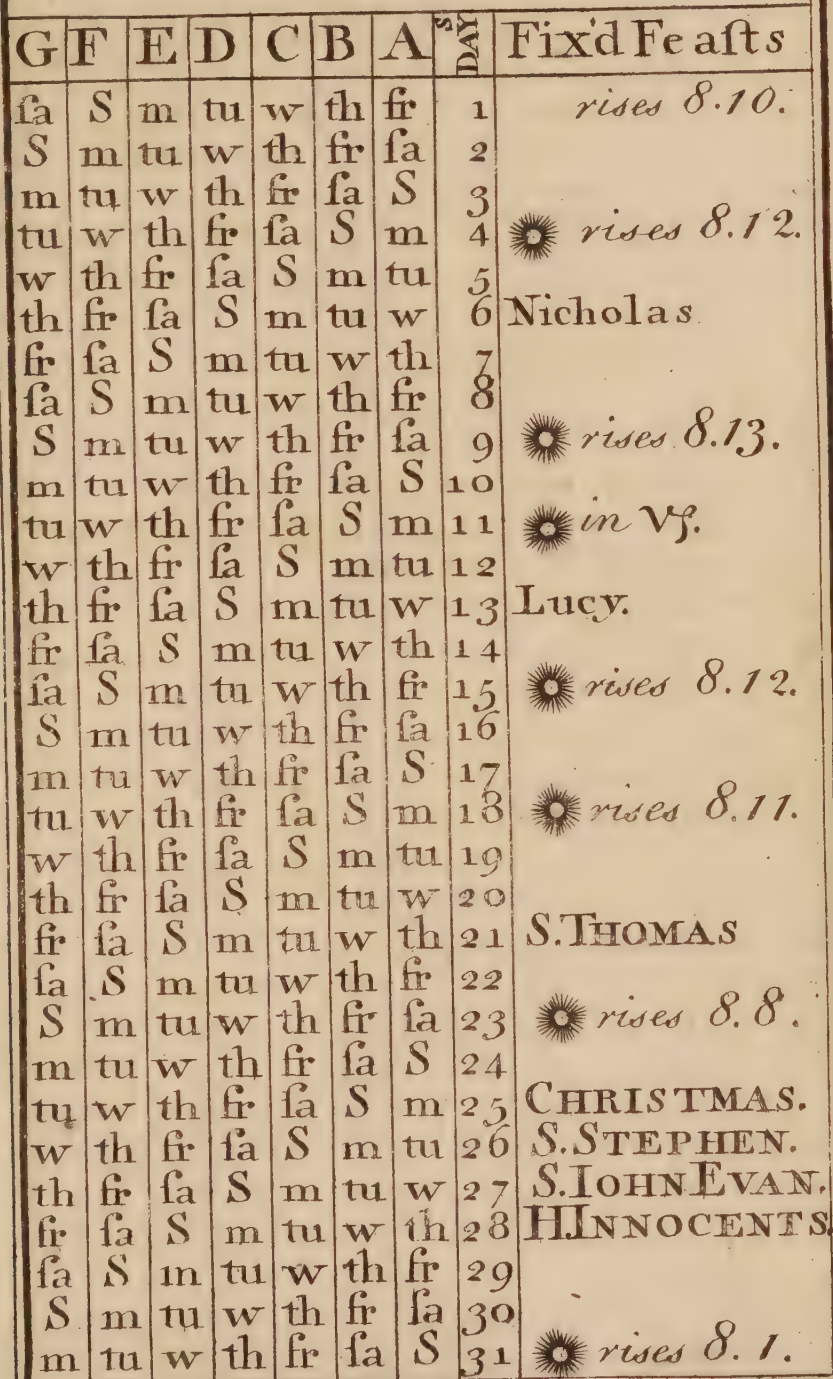 G F E D C B A DAYS Fix'd Feaſts
ſa S m tu w th fr 1 rises 8.10.
S m tu w th fr ſa 2
m tu w th fr ſa S 3
tu w th fr ſa S m 4 rises 8.12.
w th fr ſa S m tu 5
th fr ſa S m tu w 6 Nicholas
fr ſa S m tu w th 7
ſa S m tu w th fr 8
S m tu w th fr ſa 9 rises 8.13.
m tu w th fr ſa S 10
tu w th fr ſa S m 11 in ♑.
w th fr ſa S m tu 12
th fr ſa S m tu w 13 Lucy.
fr ſa S m tu w th 14
ſa S m tu w th fr 15 rises 8.12.
S m tu w th fr ſa 16
m tu w th fr ſa S 17
tu w th fr ſa S m 18 rises 8.11.
w th fr ſa S m tu 19
th fr ſa S m tu w 20
fr ſa S m tu w th 21 S.THOMAS
ſa S m tu w th fr 22
S m tu w th fr ſa 23 rises 8.8.
m tu w th fr ſa S 24
tu w th fr ſa S m 25 CHRISTMAS.
w th fr ſa S m tu 26 S.STEPHEN.
th fr ſa S m tu w 27 S.IOHN EVAN.
fr ſa S m tu w th 28 H.INNOCENTS
ſa S m tu w th fr 29
S m tu w th fr ſa 30
m tu w th fr ſa S 31 rises 8.1.